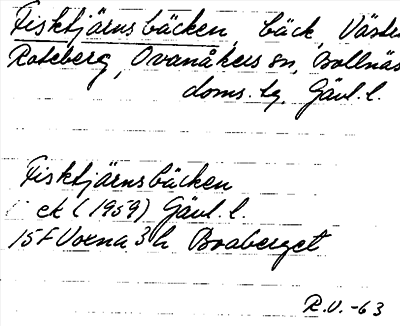 Fisktjärnsbäcken, bäck, Väster
Roteberg, Ovanåkers sn, Bollnäs
doms. tg, Gävl. l.
Fisktjärnsbäcken
ek (1959) Gävl. l.
15F Voxna 3h Braberget
R.V. -63